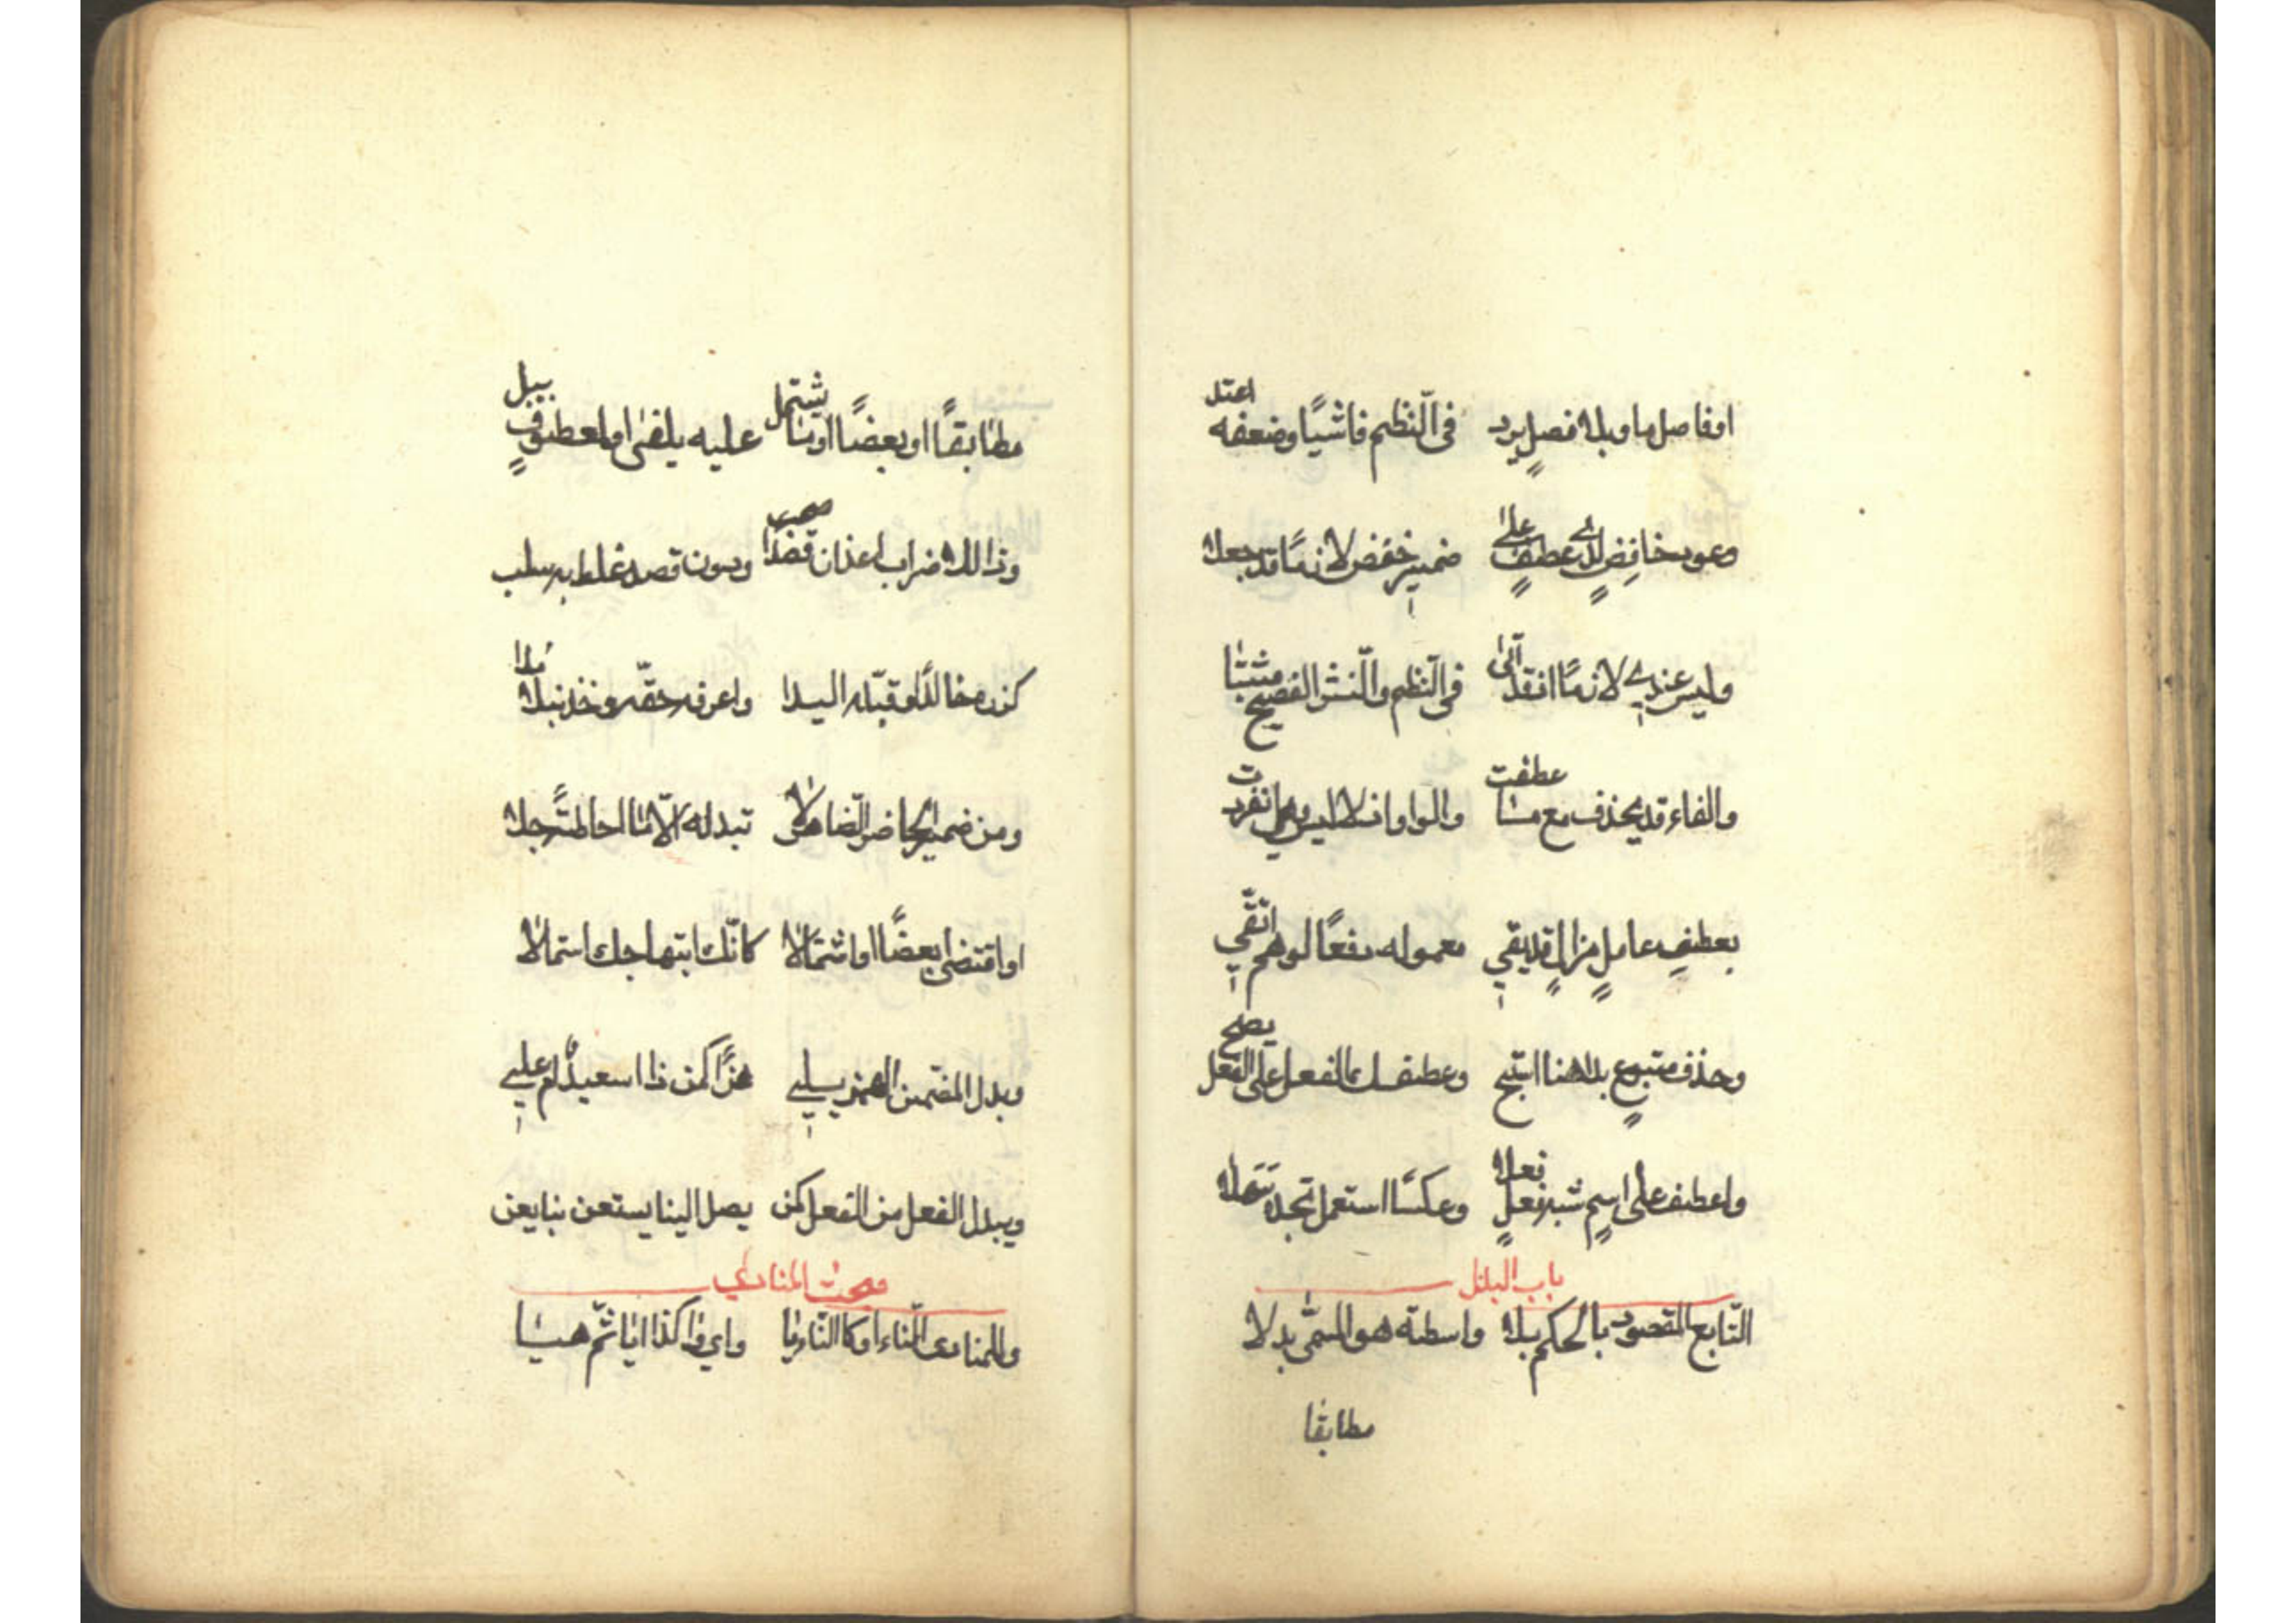 او فاصل ما وبلا فصل يرد في النّظم فاشيًا وضعفه اعتقد
وعود خافض لدى عطف على ضمير خفض لازمًا قد جعلا
وليس عندي لازمًا اذ قد اتى في النّظم والنّثر الفصيح مثبتا
والفاء قد يحذف مع ما عطفت والواو اذ لا لبس وهي انفردت
بعطف عامل مزال قد بقي معموله دفعًا لوهم اتّقي
وحذف متبوع بدا هنا استبح وعطفك الفعل على الفعل يصح
واعطف على اسم شبه فعل فعلا وعكسًا استعمل تجده سهلا
باب البدل
التّابع المقصود بالحكم بلا واسطة هو المسمّى بدلا
مطابقا
مطابقًا او بعضًا او ما يشتمل عليه يلفى او كمعطوف ببل
وذا للاضراب اعز ان قصدًا صحب ودون قصد غلط به سلب
كزره خالدًا وقبّله اليدا واعرفه حقّه وخذ نبلا مدا
ومن ضمير الحاضر الظّاهر لا تبدله الّا ما احاطةً جلا
او اقتضى بعضًا او اشتمالا كانّك ابتهاجك استمالا
وبدل المضمّن الهمز يلي همزًا كمن ذا اسعيد ام علي
ويبدل الفعل من الفعل كمن يصل الينا يستعن بنا يعن
مبحث المنادى
وللمنادى النّاء او كالنّاء يا واي وا كذا ايا ثمّ هيا